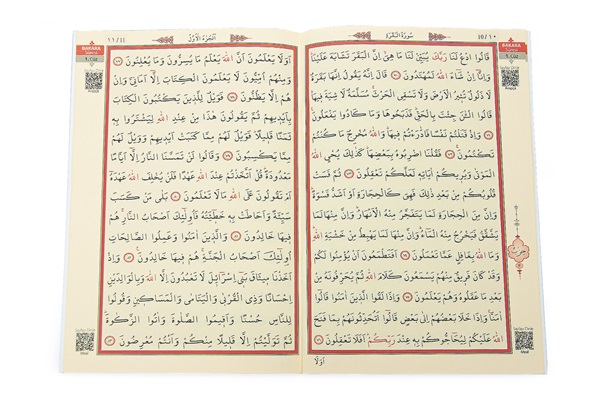 ١٠/10
سُورَةُ الْبَقَرَةِ
BAKARA
قَالُوا ادْعُ لَنَا رَبَّكَ يُبَيِّنْ لَنَا مَا هِيَ اِنَّ الْبَقَرَ تَشَابَهَ عَلَيْنَا
وَاِنَّٓا اِنْ شَٓاءَ اللّٰهُ لَمُهْتَدُونَ ٧٠ قَالَ اِنَّهُ يَقُولُ اِنَّهَا بَقَرَةٌ
لَا ذَلُولٌ تُثِيرُ الْاَرْضَ وَلَا تَسْقِي الْحَرْثَ مُسَلَّمَةٌ لَا شِيَةَ فِيهَا
قَالُوا الْـٰٔنَ جِئْتَ بِالْحَقِّ فَذَبَحُوهَا وَمَا كَادُوا يَفْعَلُونَ
٧١ وَاِذْ قَتَلْتُمْ نَفْسًا فَادّٰرَءْتُمْ فِيهَا وَاللّٰهُ مُخْرِجٌ مَا كُنْتُمْ
تَكْتُمُونَ ٧٢ فَقُلْنَا اضْرِبُوهُ بِبَعْضِهَا كَذٰلِكَ يُحْيِ اللّٰهُ
الْمَوْتٰى وَيُرِيكُمْ اٰيَاتِهِ لَعَلَّكُمْ تَعْقِلُونَ ٧٣ ثُمَّ قَسَتْ
قُلُوبُكُمْ مِنْ بَعْدِ ذٰلِكَ فَهِيَ كَالْحِجَارَةِ اَوْ اَشَدُّ قَسْوَةً
وَاِنَّ مِنَ الْحِجَارَةِ لَمَا يَتَفَجَّرُ مِنْهُ الْاَنْهَارُ وَاِنَّ مِنْهَا لَمَا
يَشَّقَّقُ فَيَخْرُجُ مِنْهُ الْمَٓاءُ وَاِنَّ مِنْهَا لَمَا يَهْبِطُ مِنْ خَشْيَةِ اللّٰهِ
وَمَا اللّٰهُ بِغَافِلٍ عَمَّا تَعْمَلُونَ ٧٤ اَفَتَطْمَعُونَ اَنْ يُؤْمِنُوا لَكُمْ
وَقَدْ كَانَ فَرِيقٌ مِنْهُمْ يَسْمَعُونَ كَلَامَ اللّٰهِ ثُمَّ يُحَرِّفُونَهُ مِنْ
بَعْدِ مَا عَقَلُوهُ وَهُمْ يَعْلَمُونَ ٧٥ وَاِذَا لَقُوا الَّذِينَ اٰمَنُوا قَالُٓوا
اٰمَنَّا وَاِذَا خَلَا بَعْضُهُمْ اِلٰى بَعْضٍ قَالُٓوا اَتُحَدِّثُونَهُمْ بِمَا فَتَحَ
اللّٰهُ عَلَيْكُمْ لِيُحَٓاجُّوكُمْ بِهِ عِنْدَ رَبِّكُمْ اَفَلَا تَعْقِلُونَ ٧٦
اَوَلَا
اَلْجُزْءُ الْاَوَّلُ
١١/11
BAKARA
اَوَلَا يَعْلَمُونَ اَنَّ اللّٰهَ يَعْلَمُ مَا يُسِرُّونَ وَمَا يُعْلِنُونَ ٧٧
وَمِنْهُمْ اُمِّيُّونَ لَا يَعْلَمُونَ الْكِتَابَ اِلَّٓا اَمَانِيَّ وَاِنْ
هُمْ اِلَّا يَظُنُّونَ ٧٨ فَوَيْلٌ لِلَّذِينَ يَكْتُبُونَ الْكِتَابَ
بِاَيْدِيهِمْ ثُمَّ يَقُولُونَ هٰذَا مِنْ عِنْدِ اللّٰهِ لِيَشْتَرُوا بِهِ
ثَمَنًا قَلِيلًا فَوَيْلٌ لَهُمْ مِمَّا كَتَبَتْ اَيْدِيهِمْ وَوَيْلٌ لَهُمْ
مِمَّا يَكْسِبُونَ ٧٩ وَقَالُوا لَنْ تَمَسَّنَا النَّارُ اِلَّٓا اَيَّامًا
مَعْدُودَةً قُلْ اَتَّخَذْتُمْ عِنْدَ اللّٰهِ عَهْدًا فَلَنْ يُخْلِفَ اللّٰهُ عَهْدَهُ
اَمْ تَقُولُونَ عَلَى اللّٰهِ مَا لَا تَعْلَمُونَ ٨٠ بَلٰى مَنْ كَسَبَ
سَيِّئَةً وَاَحَاطَتْ بِهِ خَطِٓيئَتُهُ فَاُولٰٓئِكَ اَصْحَابُ النَّارِ هُمْ
فِيهَا خَالِدُونَ ٨١ وَالَّذِينَ اٰمَنُوا وَعَمِلُوا الصَّالِحَاتِ
اُولٰٓئِكَ اَصْحَابُ الْجَنَّةِ هُمْ فِيهَا خَالِدُونَ ٨٢ وَاِذْ
اَخَذْنَا مِيثَاقَ بَنِٓي اِسْرَٓائِيلَ لَا تَعْبُدُونَ اِلَّا اللّٰهَ وَبِالْوَالِدَيْنِ
اِحْسَانًا وَذِي الْقُرْبٰى وَالْيَتَامٰى وَالْمَسَاكِينِ وَقُولُوا
لِلنَّاسِ حُسْنًا وَاَقِيمُوا الصَّلٰوةَ وَاٰتُوا الزَّكٰوةَ
ثُمَّ تَوَلَّيْتُمْ اِلَّا قَلِيلًا مِنْكُمْ وَاَنْتُمْ مُعْرِضُونَ ٨٣